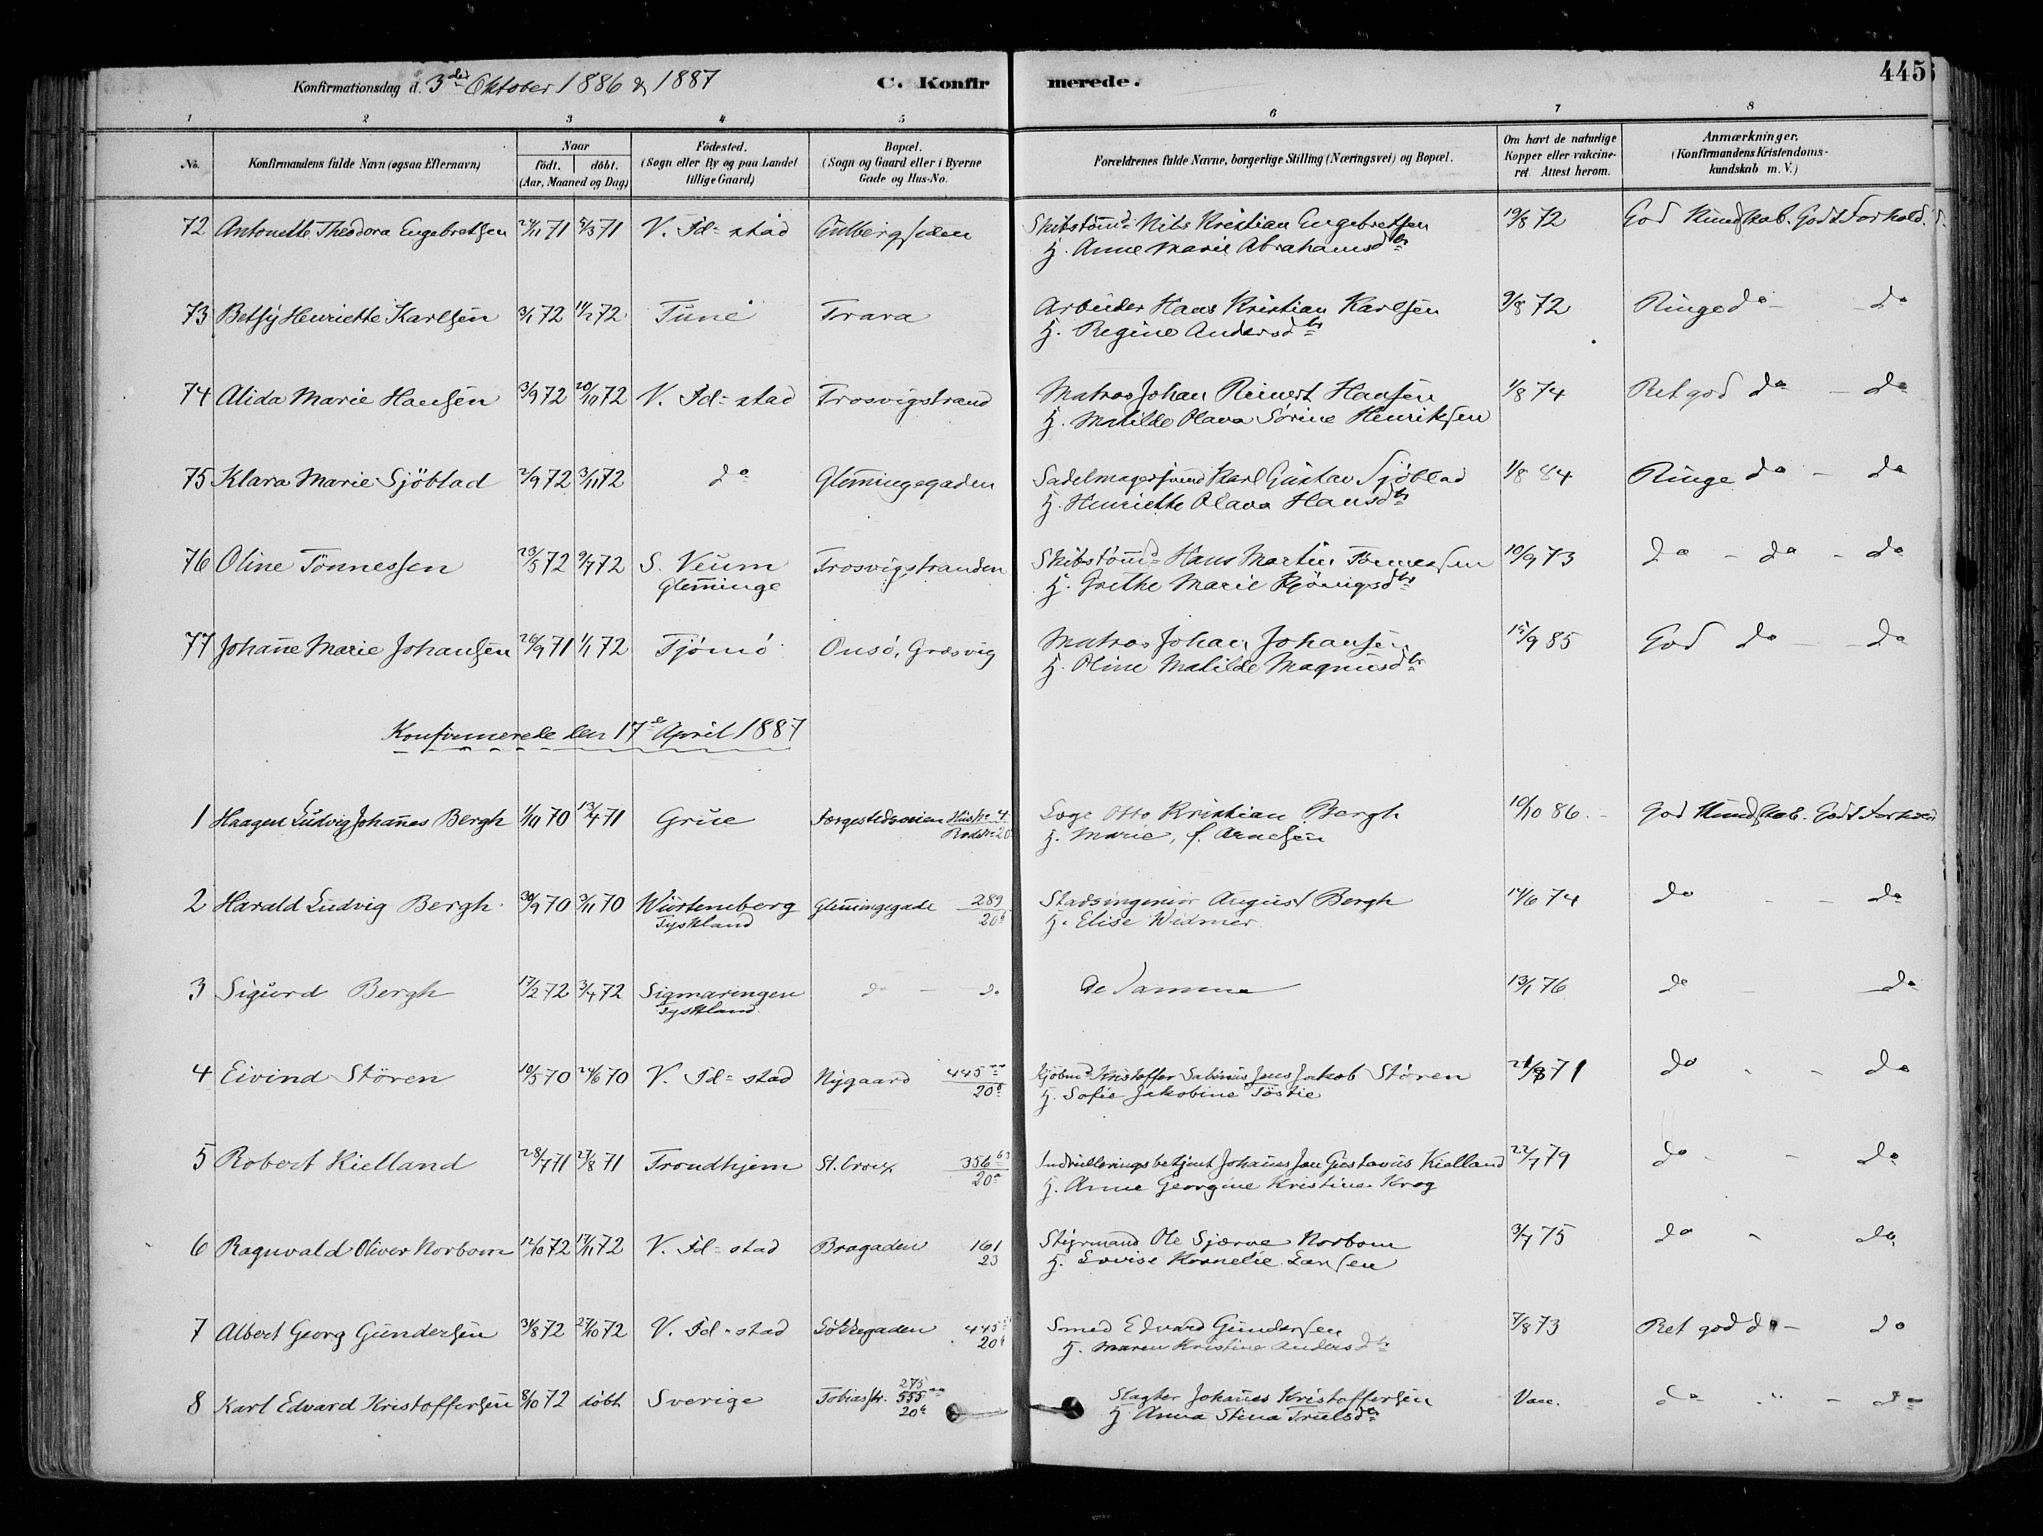 Konfirmationsdag d. 3die Oktober 1886 & 1887 C. Konfirmerede. 445
1 2 3 4 5 6 7 8
No. Konfirmandens fulde Navn (ogsaa Efternavn) Naar født. døbt. (Aar, Maaned og Dag) Fødested. (Sogn eller By og paa Landet tillige Gaard) Bopæl. (Sogn og Gaard eller i Byerne Gade og Hus-No. Forældrenes fulde Navne, borgerlige Stilling (Næringsvei) og Bopæl. Om havt de naturlige Kopper eller vakcineret Attest herom. Anmærkninger. (Konfirmandens Kristendomskundskab m. V.)
72 Antonette Theodora Engebretsen 24/1 71 5/3 71 V. Fd=stad Nils Kristian Engebretsen 19/8 72 God Kundskab. Godt Forhold.
H. Anne Marie Abrahamsdtr
73 Betsy Henriette Karlsen 3/1 72 11/2 72 Tune Trara Arbeider Hans Kristian Karlsen 9/8 72 Ringe do - do
H. Regine Andersdtr
74 Alida Marie Hansen 3/9 72 20/10 72 V. Fd=stad Trosvigstrand Matros Johan Reinert Hansen 1/8 74 Ret god do - do
H. Matilde Olava Sørine Henriksen
75 Klara Marie Sjöblad 2/9 72 3/11 72 do Glemmingegaden Sadelmagersvend Karl Gustav Sjöblad 1/8 84 Ringe do - do
H. Henriette Olava Hansdtr
76 Oline Tönnessen 23/5 72 9/7 72 S. Veum Trosvigstranden Skibstømmd Hans Martin Tønnessen 10/9 73 do - do - do
Glemminge H. Grethe Marie
77 Johanne Marie Johansen 26/9 71 1/1 72 Tjømø Onsö, Græsvig Matros Johan Johansen 15/9 85 God do - do
H. Oline Matilde Magnusdtr
Konfirmerede den 17de April 1887
1 Haagen Ludvig Johannes Bergh 1/11 70 13/4 71 Grue Færgestedsveien Otto Kristian Bergh 10/10 86. God Kundskab. Godt Forhold
H. Marie, f. Arnesen
2 Harald Ludvig Bergh 30/9 70 3/11 70 Würtemberg Glemmingegade 289 Stadsingeniør August Bergh 14/6 74 do - - do
Tyskland 20b H. Elise Widmer
3 Sigurd Bergh 17/2 72 3/4 72 Sigmaringen do - do De Samme 13/1 76 do - do
Tyskland
4 Eivind Stören 10/5 70 24/6 70 V. Fd=stad Nygaard 445 Kjøbmd Kristoffer Sabinus Jens Jakob Stören 21/8 71 do - - do
20b H. Sofie Jakobine Töstie
5 Robert Kielland 28/7 71 27/8 71 Trondhjem St. Croix 356 Indrulleringsbetjent Johannes Jan Gustavus Kielland 22/7 79 do - - do
20a H. Anne Georgine Kristine Krog
6 Ragnvald Oliver Norbom 12/10 72 17/11 72 V. Fd=stad Bragaden 161 Styrmand Ole Sjærve Norbom 3/7 75 do - do
23 H. Lovise Kornelie Larssen
7 Albert Georg Gundersen 31/8 72 27/10 72 V. Fd=stad 445 Smed Edvard Gundersen 7/8 73 Ret god do - do
20b H. Maren Kristine Andersdtr
8 Karl Edvard Kristoffersen 8/10 72 döbt Sverige Tobiasstr. 275 Slagter Johannes Kristoffersen Vacc. do " - do
555 20b H. Anna Stina Trulsdtr